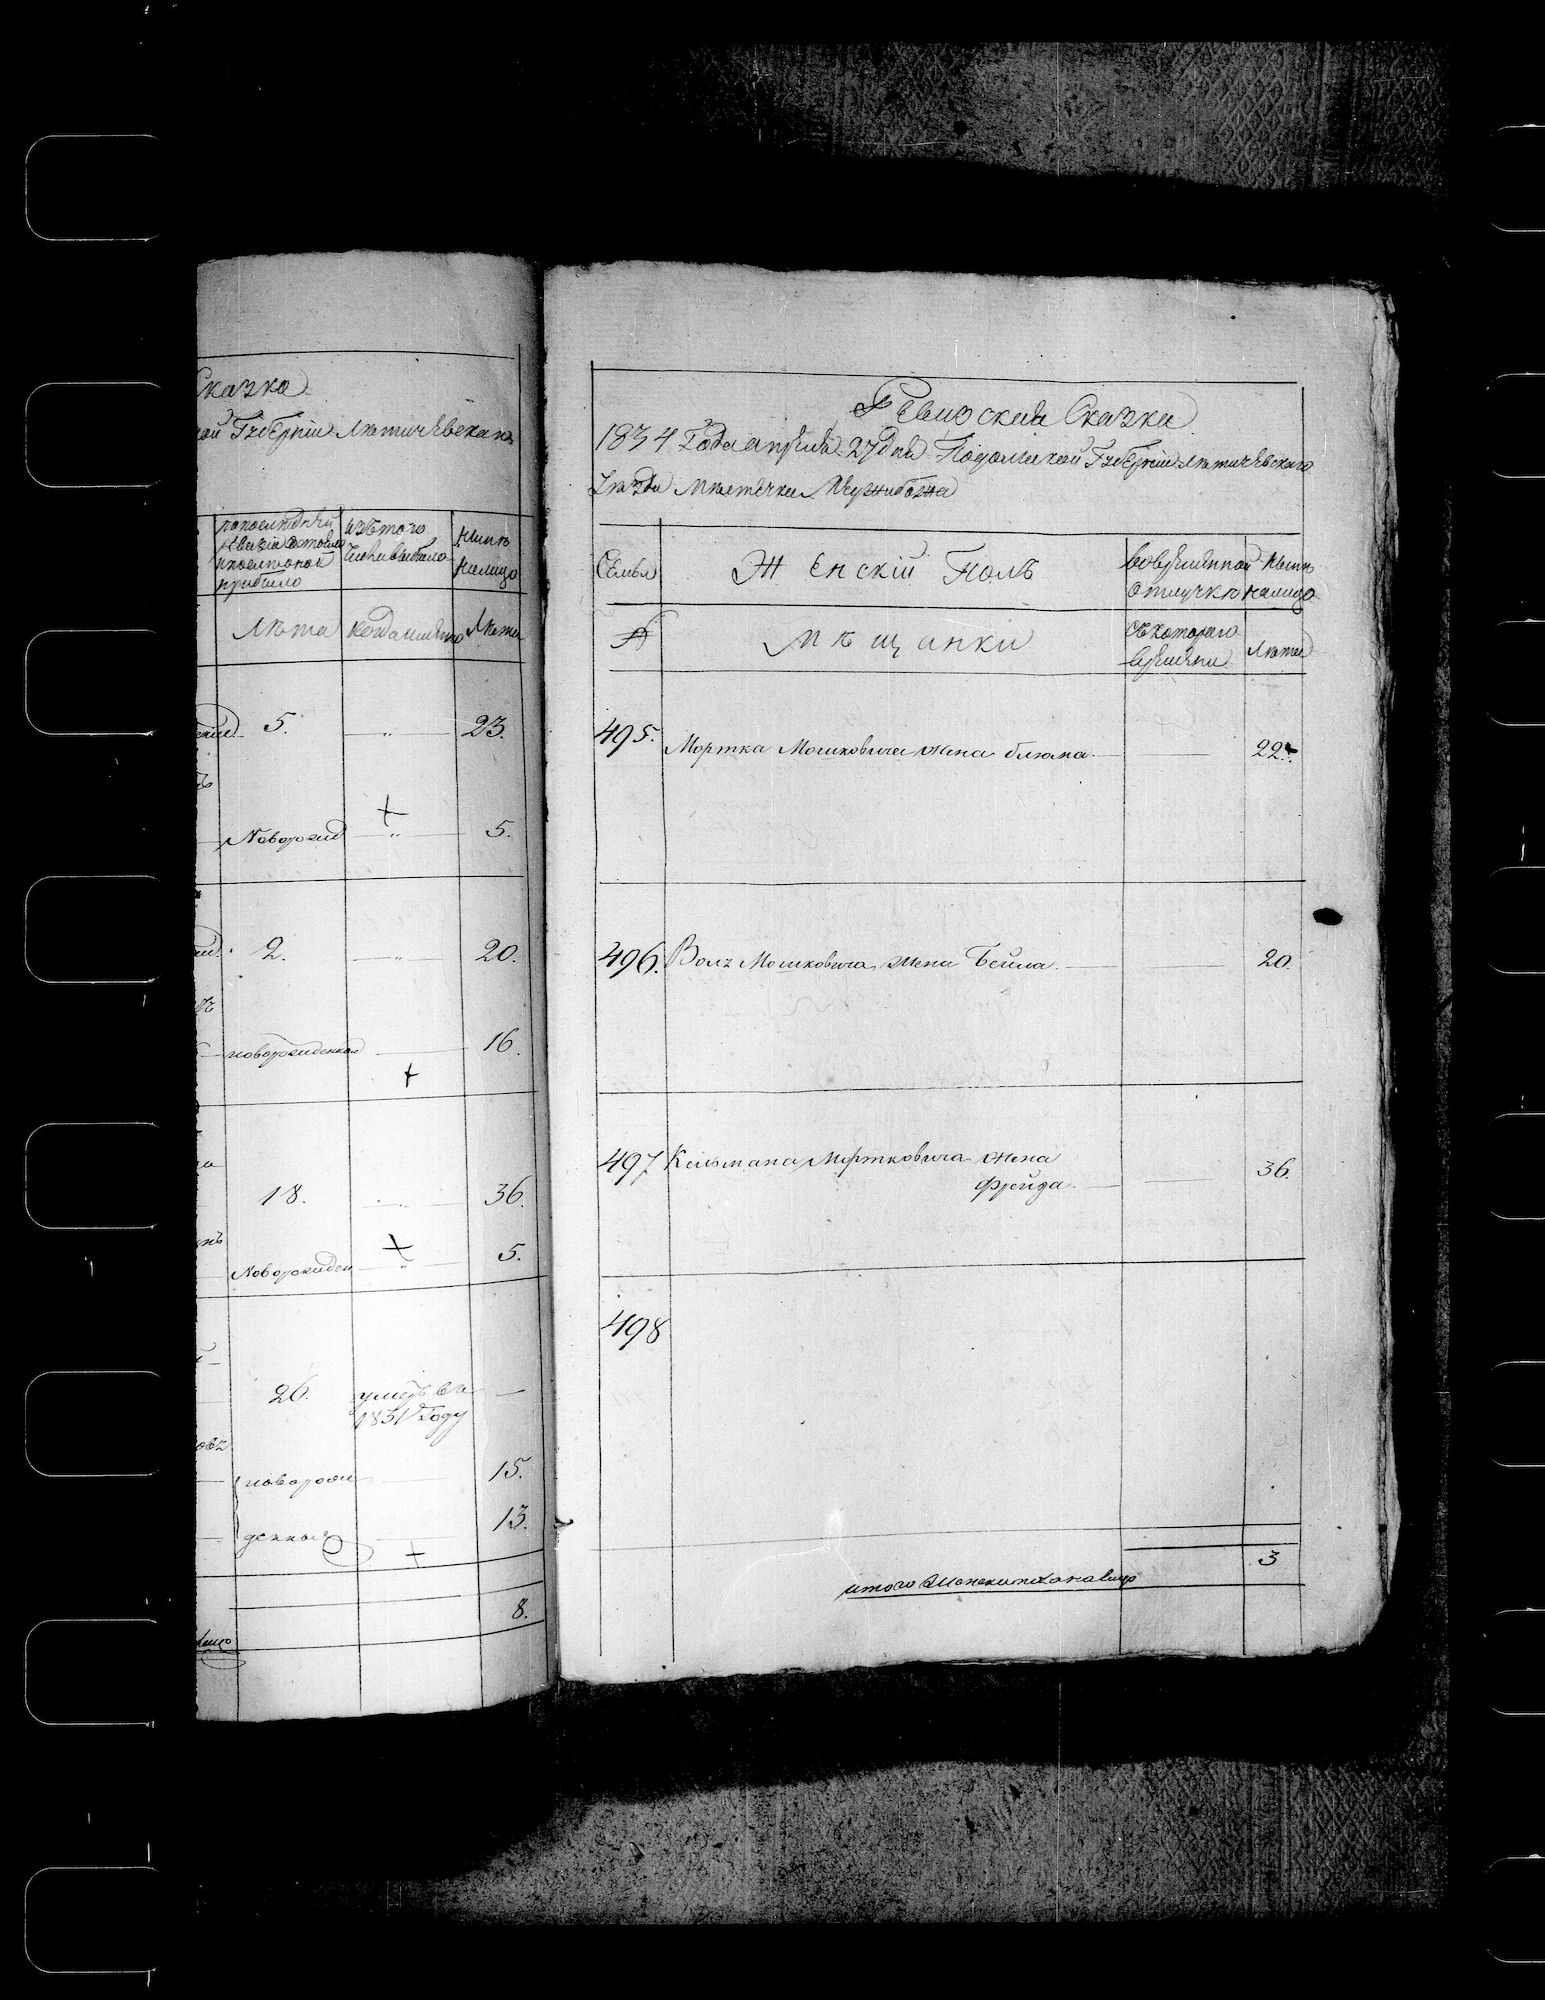 Сказка
ой Губерніи Лѣтичевскаго
попослѣдней
ревизіи состояло
ипослѣтого
прибыло
изътого
числавыбыло
нынѣ
налицо
Лѣта
когдаимянно
Лѣта
5. „ 23.
Новорожд „ 5.
2. „ 20.
новорожденной 16.
18. 36.
Новорожден „ 5.
26. умеръ въ
1831 Году
новорож 15.
денныя 13.
8.
Ревизская Сказка
1834 Года апреля 27 дня Подольской Губерніи Лѣтичевского
Уѣзда Мѣстечка Межибожа
Семьи
Женскій Полъ
вовременной
отлучкѣ
Нынѣ
налицо
№
Мѣщанки
съкотораго
времяни
Лѣта
495. Мортка Мошковича жена блюма 22.
496. Волъ Мошковича жена Бейла. 20.
497 Кельмана Мортковича жена
Фрейда. 36.
498
итого женскапола налицо 3